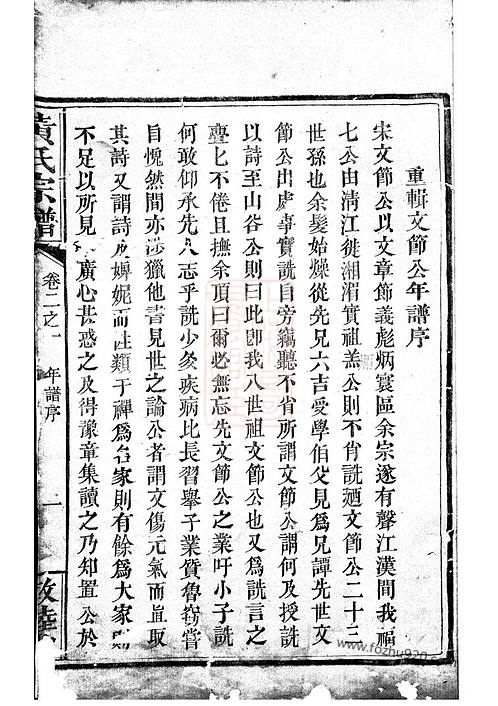 重輯文節公年譜序
宋文節公以文章節義彪炳寰區余宗遂有聲江漢間我福
七公由清江徙湘湄實祖羔公則不肖詵廼文節公二十三
世孫也余髮始燥從先兄六吉受學伯父見爲兄譚先世文
節公出處事實詵自旁竊聽不省所謂文節公謂何及授詵
以詩至山谷公則曰此卽我八世祖文節公也又爲詵言之
亹匕不倦且撫余頂曰爾必無忘先文節公之業吁小子詵
何敢仰承先人志乎詵少負疾病比長習舉子業質魯窃嘗
自愧然間亦涉獵他書見世之論公者謂文傷元氣而直取
其詩又謂詩成嬋妮而性類于禪爲名家則有餘爲大家則
不足以所見 廣心甚惑之及得豫章集讀之乃知置公於
黃氏宗譜
卷二之一 年譜序
一
敦睦堂
www.fozhu920.com